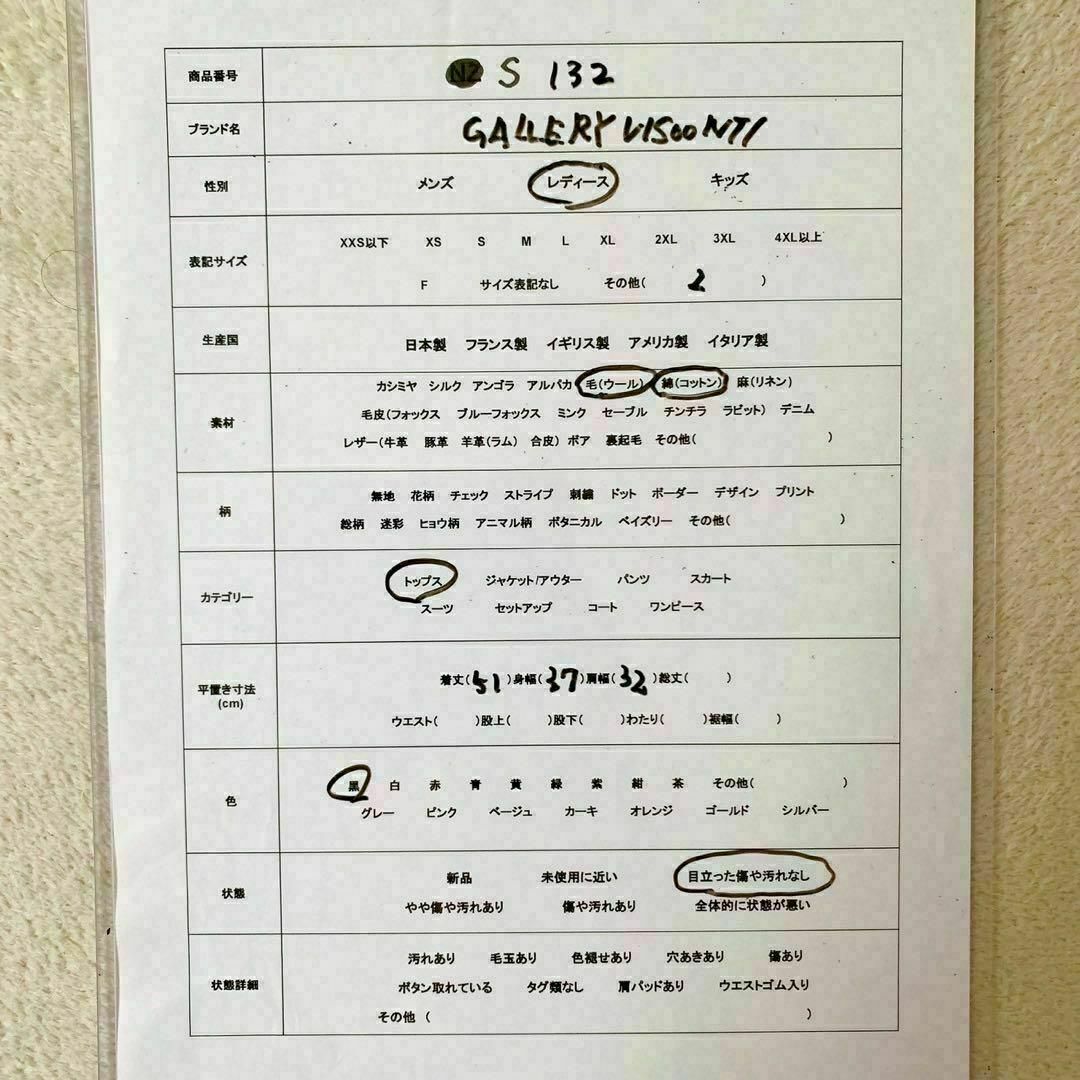 商品番号 N2 S 132
ブランド名 GALLERY VISCONTI
性別 メンズ レディース キッズ
XXS以下 XS S M L XL 2XL 3XL 4XL以上
表記サイズ
F サイズ表記なし その他( 2 )
生産国 日本製 フランス製 イギリス製 アメリカ製 イタリア製
カシミヤ シルク アンゴラ アルパカ 毛(ウール) 綿(コットン) 麻(リネン)
素材 毛皮(フォックス ブルーフォックス ミンク セーブル チンチラ ラビット) デニム
レザー(牛革 豚革 羊革(ラム) 合皮) ボア 裏起毛 その他( )
無地 花柄 チェック ストライプ 刺繍 ドット ボーダー デザイン プリント
柄
総柄 迷彩 ヒョウ柄 アニマル柄 ボタニカル ペイズリー その他( )
トップス ジャケット/アウター パンツ スカート
カテゴリー
スーツ セットアップ コート ワンピース
着丈(51)身幅(37)肩幅(32)総丈( )
平置き寸法
(cm)
ウエスト( )股上( )股下( )わたり( )裾幅( )
黒 白 赤 青 黄 緑 紫 紺 茶 その他( )
色
グレー ピンク ベージュ カーキ オレンジ ゴールド シルバー
新品 未使用に近い 目立った傷や汚れなし
状態
やや傷や汚れあり 傷や汚れあり 全体的に状態が悪い
汚れあり 毛玉あり 色褪せあり 穴あきあり 傷あり
状態詳細 ボタン取れている タグ類なし 肩パッドあり ウエストゴム入り
その他 ( )